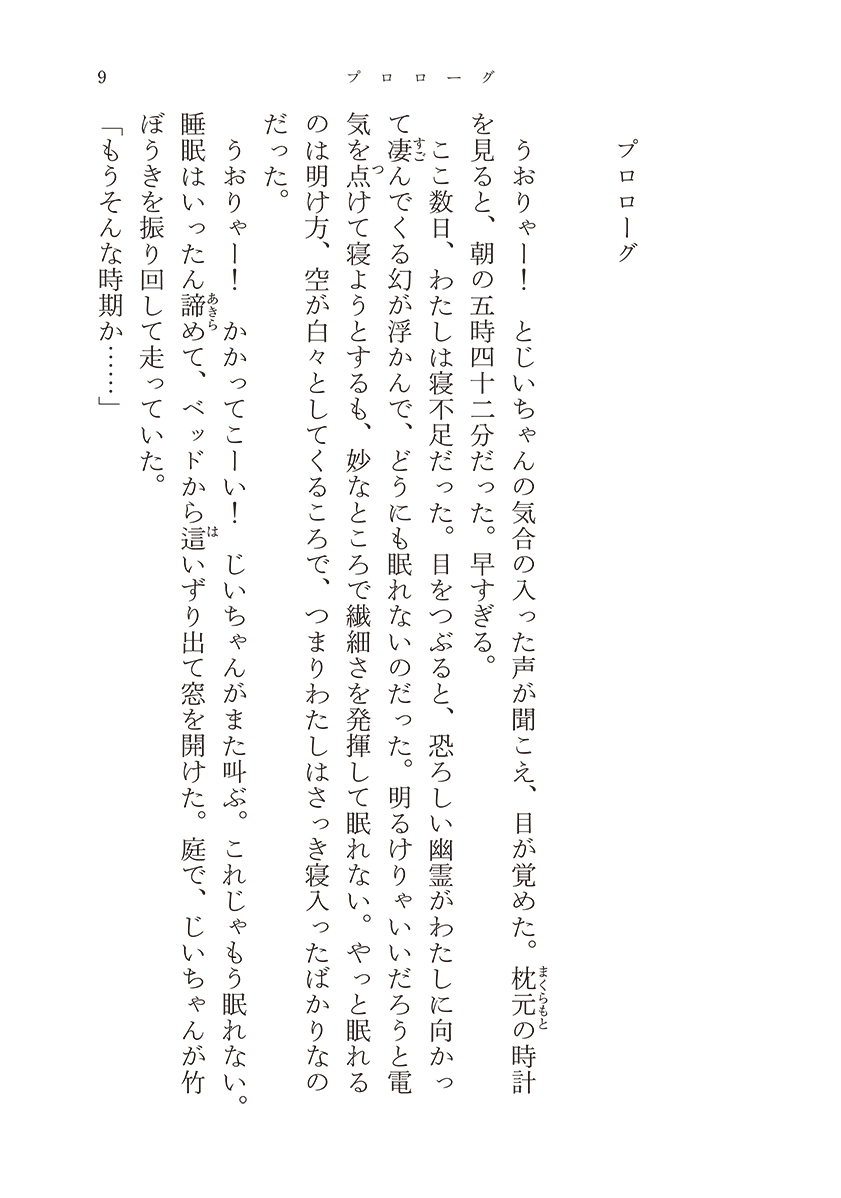 9
プロローグ
プロローグ
うおりゃー！　とじいちゃんの気合の入った声が聞こえ、目が覚めた。枕元の時計
まくらもと
を見ると、朝の五時四十二分だった。早すぎる。
ここ数日、わたしは寝不足だった。目をつぶると、恐ろしい幽霊がわたしに向かっ
て凄んでくる幻が浮かんで、どうにも眠れないのだった。明るけりゃいいだろうと電
すご
気を点けて寝ようとするも、妙なところで繊細さを発揮して眠れない。やっと眠れる
つ
のは明け方、空が白々としてくるころで、つまりわたしはさっき寝入ったばかりなの
だった。
うおりゃー！　かかってこーい！　じいちゃんがまた叫ぶ。これじゃもう眠れない。
睡眠はいったん諦めて、ベッドから這いずり出て窓を開けた。庭で、じいちゃんが竹
あきら
は
ぼうきを振り回して走っていた。
「もうそんな時期か……」